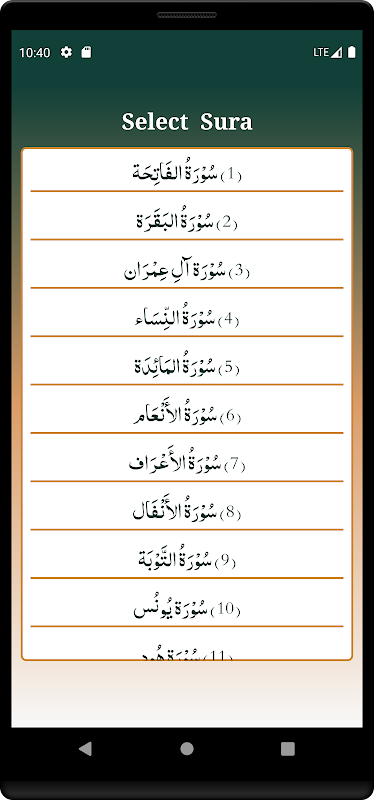 10:40 LTE
Select Sura
سُوْرَةُ الفَاتِحَة (1)
سُوْرَةُ البَقَرَة (2)
سُوْرَة آلِ عِمْرَان (3)
سُوْرَةُ النِّسَاء (4)
سُوْرَةُ المَائِدَة (5)
سُوْرَةُ الأَنْعَام (6)
سُوْرَةُ الأَعْرَاف (7)
سُوْرَةُ الأَنْفَال (8)
سُوْرَةُ التَّوْبَة (9)
سُوْرَة يُونُس (10)
سُوْرَة هُود (11)